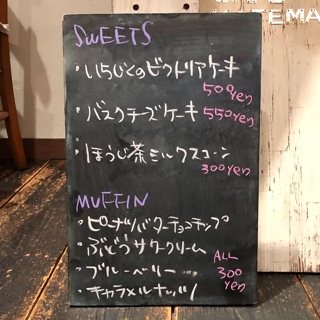 SWEETS
・いちじくのビクトリアケーキ
500yen
・バスクチーズケーキ 550yen
・ほうじ茶ミルクスコーン
300yen
MUFFIN
・ピーナツバターチョコチップ
・ぶどうサワークリーム
・ブルーベリー
・キャラメルナッツ
ALL
300
yen